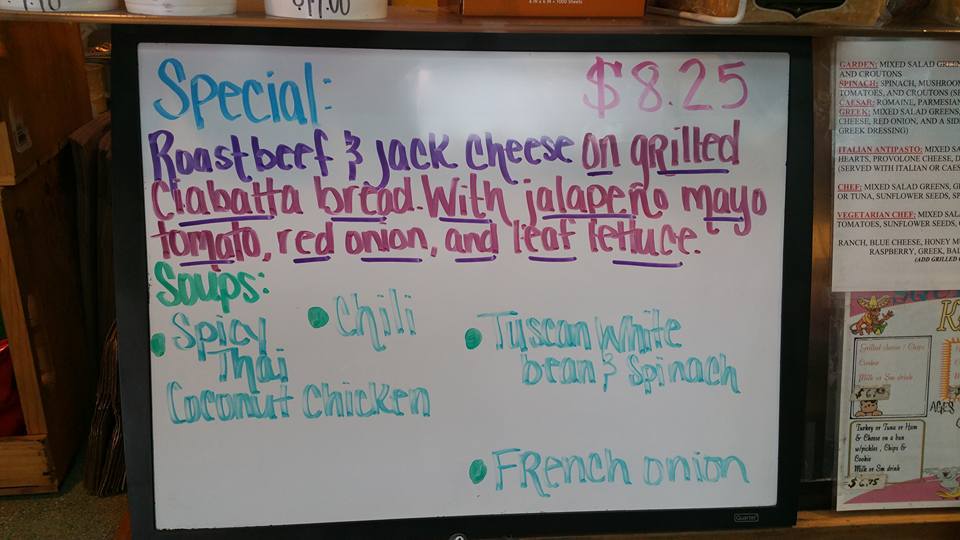 $19.00
6 IN x 6 IN - 1000 Sheets
Special: $8.25
Roast beef & jack cheese on grilled
Ciabatta bread. With jalapeño mayo
tomato, red onion, and leaf lettuce.
Soups:
• Spicy
Thai
Coconut chicken
• Chili
• Tuscan White
bean & Spinach
• French onion
Quartet
GARDEN: MIXED SALAD
AND CROUTONS
SPINACH: SPINACH,
TOMATOES, AND CROUTONS
CAESAR: ROMAINE, PARMESAN
GREEK: MIXED SALAD GREENS,
CHEESE, RED ONION, AND A
GREEK DRESSING)
ITALIAN ANTIPASTO: MIXED
HEARTS, PROVOLONE CHEESE,
(SERVED WITH ITALIAN OR
CHEF: MIXED SALAD GREENS,
OR TUNA, SUNFLOWER SEEDS,
VEGETARIAN CHEF: MIXED
TOMATOES, SUNFLOWER SEEDS,
RANCH, BLUE CHEESE, HONEY
RASPBERRY, GREEK,
(ADD GRILLED
Grilled cheese / Chips
Cookie
Milk or Sm drink
AGES
Turkey or Tuna or Ham
& Cheese on a bun
w/pickles, Chips &
Cookie
Milk or Sm drink
$6.75